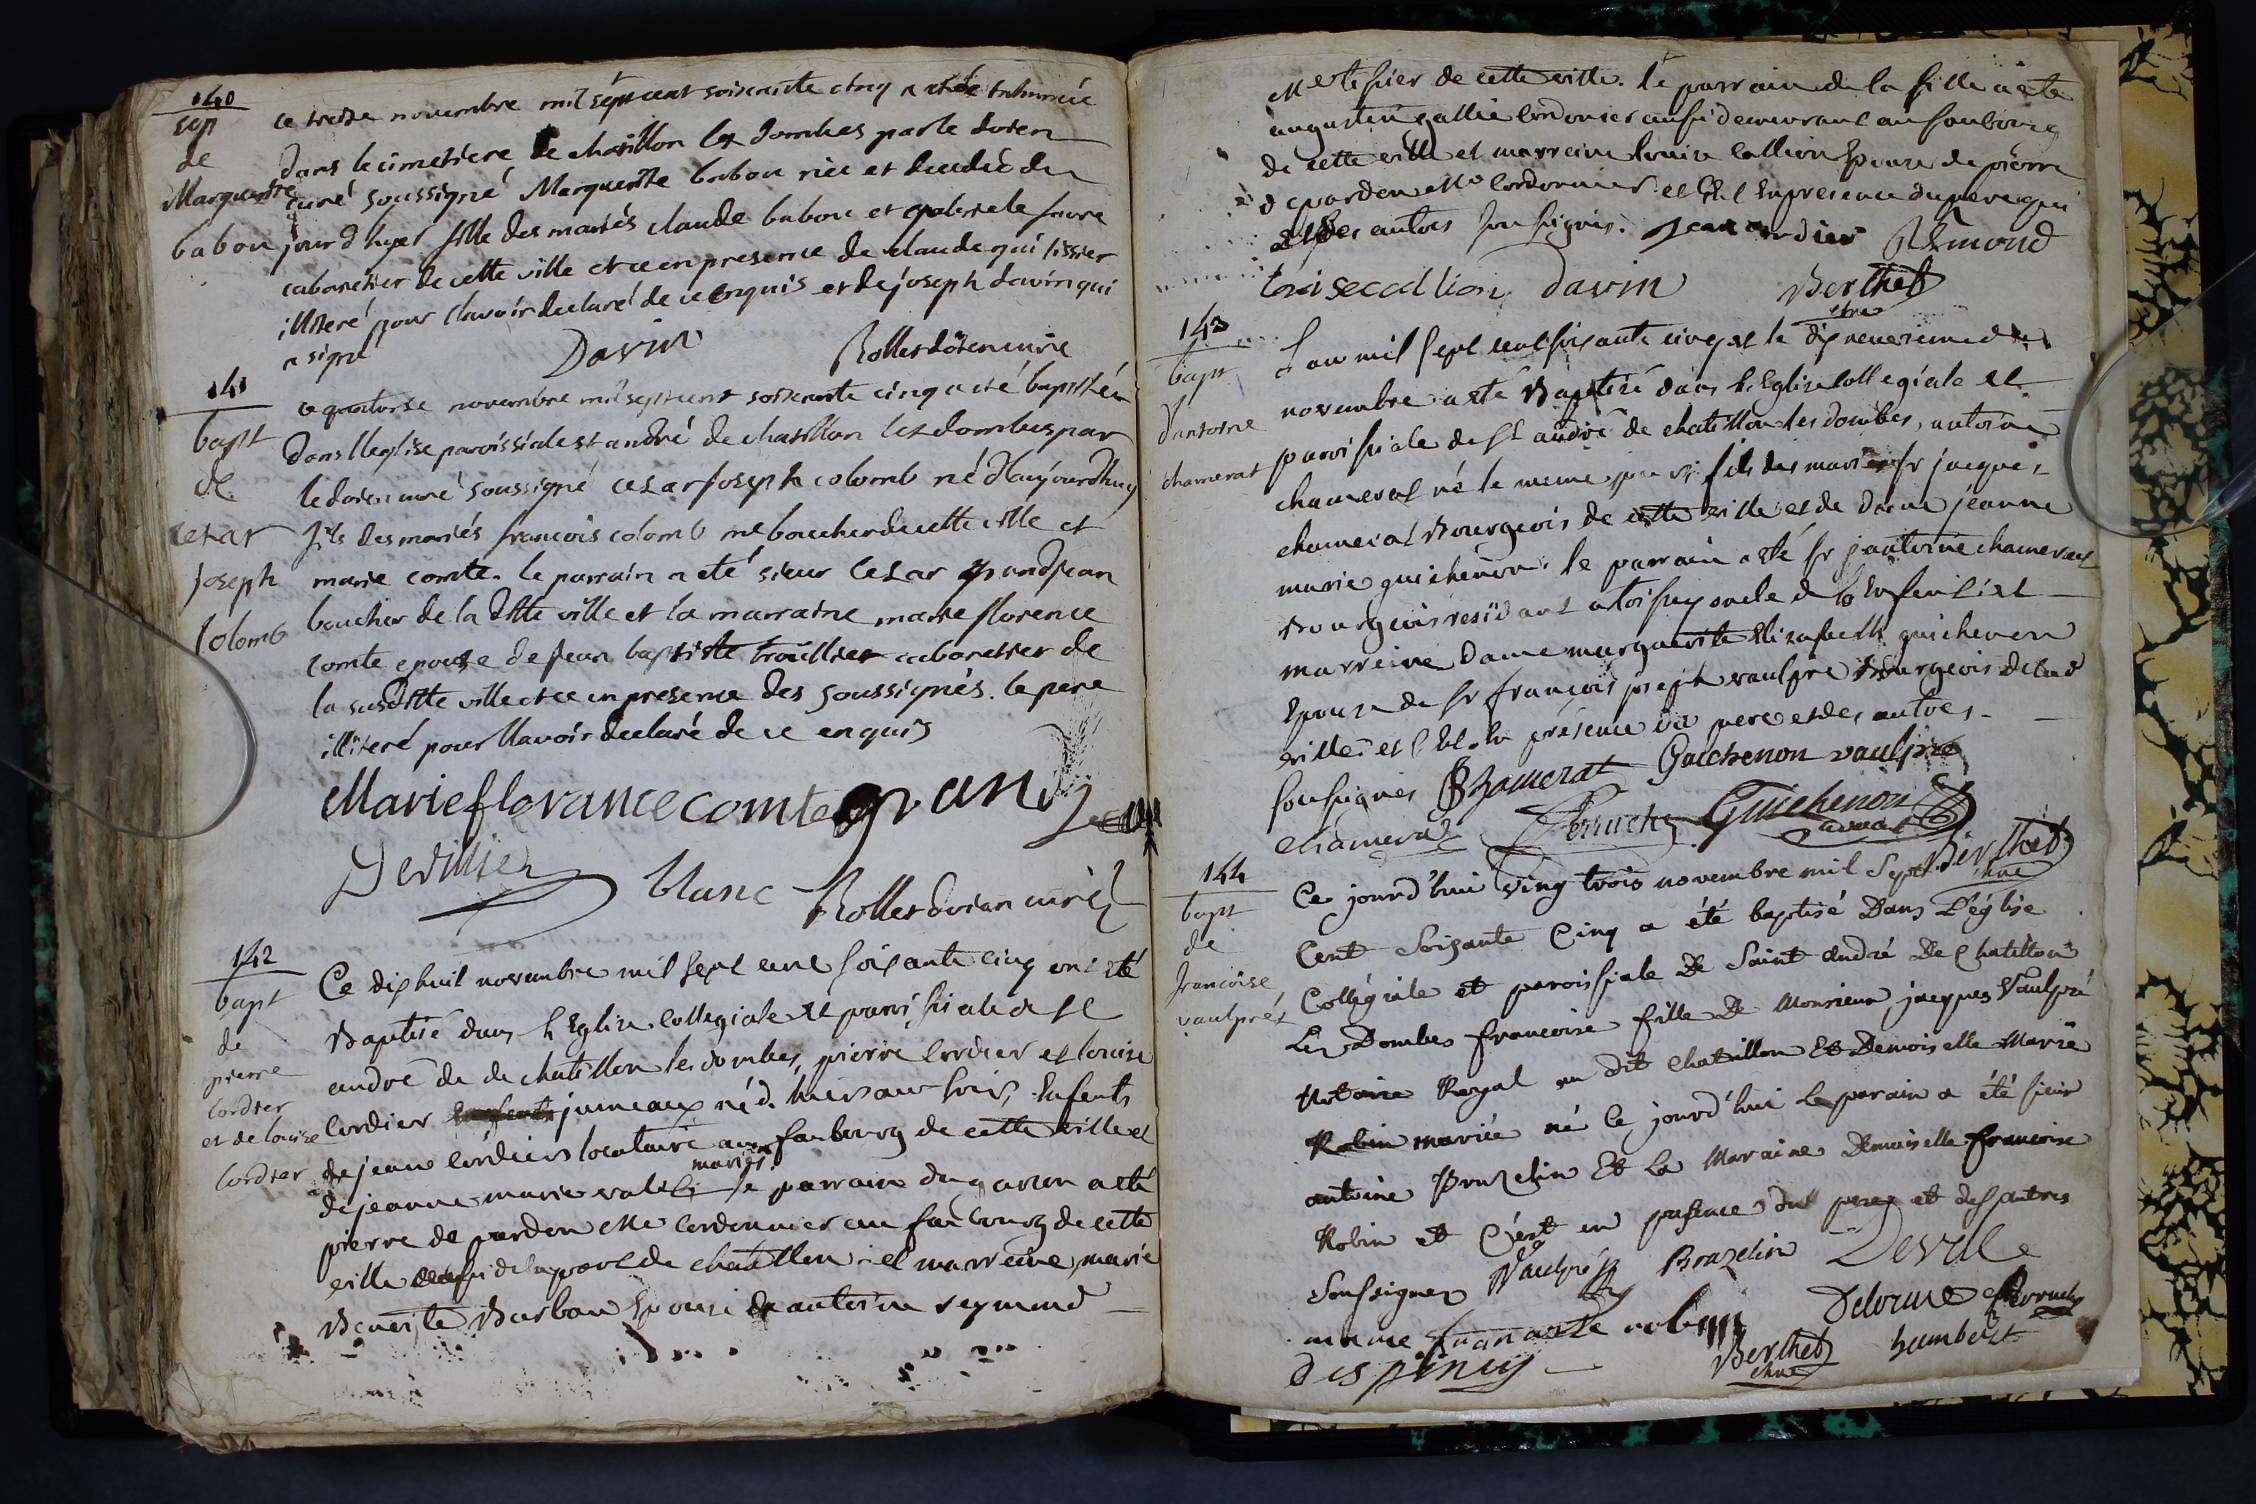 140
sep
de
Marguerite
babou
ce treise novembre mil sept cent soixante cinq a eté inhumée
dans le cimetiere de chatillon les dombes par le doien
curé soussigné Marguerite babou née et decedée du
jour d'hyer fille des mariés claude babou et gabriele favre
cabaretier de cette ville et ce en presence de claude qui tissier
illiteré pour l'avoir declaré de ce enquis et de joseph davin qui
a signé Davin Rollet doien curé
141
bapt
de
cesar
Joseph
Colomb
ce quatorse novembre mil sept cent soixante cinq a eté baptisé
dans lleglise paroissiale st andré de chatillon les dombes par
le doien curé soussigné cesar joseph colomb né d'haujourdhuy
fils des mariés françois colomb me boucher de cette ville et
marie comte. le parrain a eté sieur cesar grandjean
boucher de la ditte ville et la marraine marie florence
comte epouse de jean baptiste trouillier cabaretier de
la susditte ville et ce en presence des soussignés. le pere
illiteré pour llavoir declaré de ce enquis
Marie florance comte grand jean
Deville blanc Rollet doien curé
142
bapt
de
pierre
Cordier
et de louise
Cordier
Ce dix huit novembre mil sept cent soixante cinq ont eté
Baptisé dans l'Eglise Collegiale et paroissiale de st
andré de de chatillon les dombes, pierre Cordier et louise
Cordier jumeaux né d'hier au soir, enfents
de jean Cordier locataire aux faubourg de cette ville et
mariés
de jeanne marie le parrain du garçon a eté
pierre de pardon Me Cordonnier au faubourg de cette
ville de la porte de chatillon et marreine marie
Benoite Burban Epouse de antoine reymond
Me de cette ville. le parrain de la fille a eté
augustin gallie Cordonier aussi demeurant au faubourg
de cette ville et marreine louise callion Epouse de pierre
deparden Me Cordonnier et C'Est En presence du pere qui
et des autres soussignés. Jean cordier Remond
louise callion Davin Berthet
chne
143
bapt
d'antoine
chamerat
L'an mil sept cent soixante cinq et le dix neuvieme de
novembre a eté Baptisé dans l'Eglise Collegiale et
paroissiale de st andré de chatillon les dombes, antoine
chamerat né le meme jour fils des mariés sr jacques
chamerat Bourgeois de cette ville et de dame jeanne
marie guichenon. le parrain a eté sr j antoine chamerat
Bourgeois residant a toissey oncle de l'Enfent et
marreine dame marguerite Elizabeth guichenon
Epouse de sr françois joseph vaulpré Bourgeois de lad
ville. et C'Est En présence du pere et des autres
soussignés Chamerat Guichenon vaulpré
chamerat Perruchy Guichenon
avocat
Berthet
chne
144
bapt
de
francoise
vaulprés
Ce jourd'hui vingt trois novembre mil sept
Cent Soixante Cinq a été baptisé Dans L'église
Collégiale et paroissiale De Saint André De Chatillon
Les Dombes francoise fille De Monsieur jacques Vaulpré
Notaire Royal au dit Chatillon Et Demoiselle Marie
Robin mariée né le jourd'hui Le parain a été sieur
antoine Bruzelin Et La Maraine Demoiselle francoise
Robin et C'est en présence du perez et des autres
Soussignez Vaulpré Bruzelin Deville
Delorme Perruchy
robin
Berthet
chne
humbert